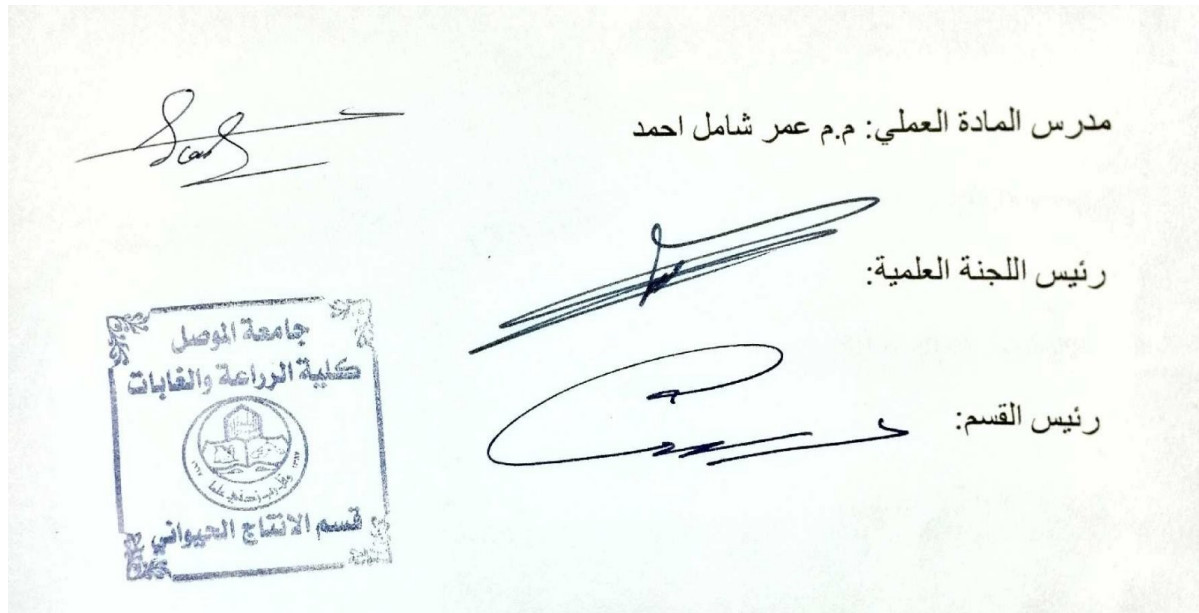 مدرس المادة العملي: م.م عمر شامل احمد
رئيس اللجنة العلمية:
رئيس القسم:
جامعة الموصل
كلية الزراعة والغابات
قسم الانتاج الحيواني